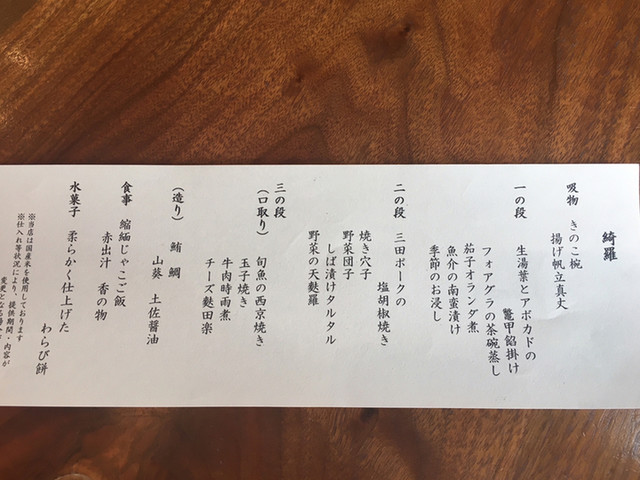 綺羅
吸物 きのこ椀
揚げ帆立真丈
一の段 生湯葉とアボカドの
鼈甲餡掛け
フォアグラの茶碗蒸し
茄子オランダ煮
魚介の南蛮漬け
季節のお浸し
二の段 三田ポークの
塩胡椒焼き
焼き穴子
野菜団子
しば漬けタルタル
野菜の天麩羅
三の段
(口取り) 旬魚の西京焼き
玉子焼き
牛肉時雨煮
チーズ麩田楽
(造り) 鮪 鯛
山葵 土佐醤油
食事 縮緬じゃこご飯
赤出汁 香の物
水菓子 柔らかく仕上げた
わらび餅
※当店は国産米を使用しております
※仕入れ等状況により、提供期間・内容が
変更となる場合が